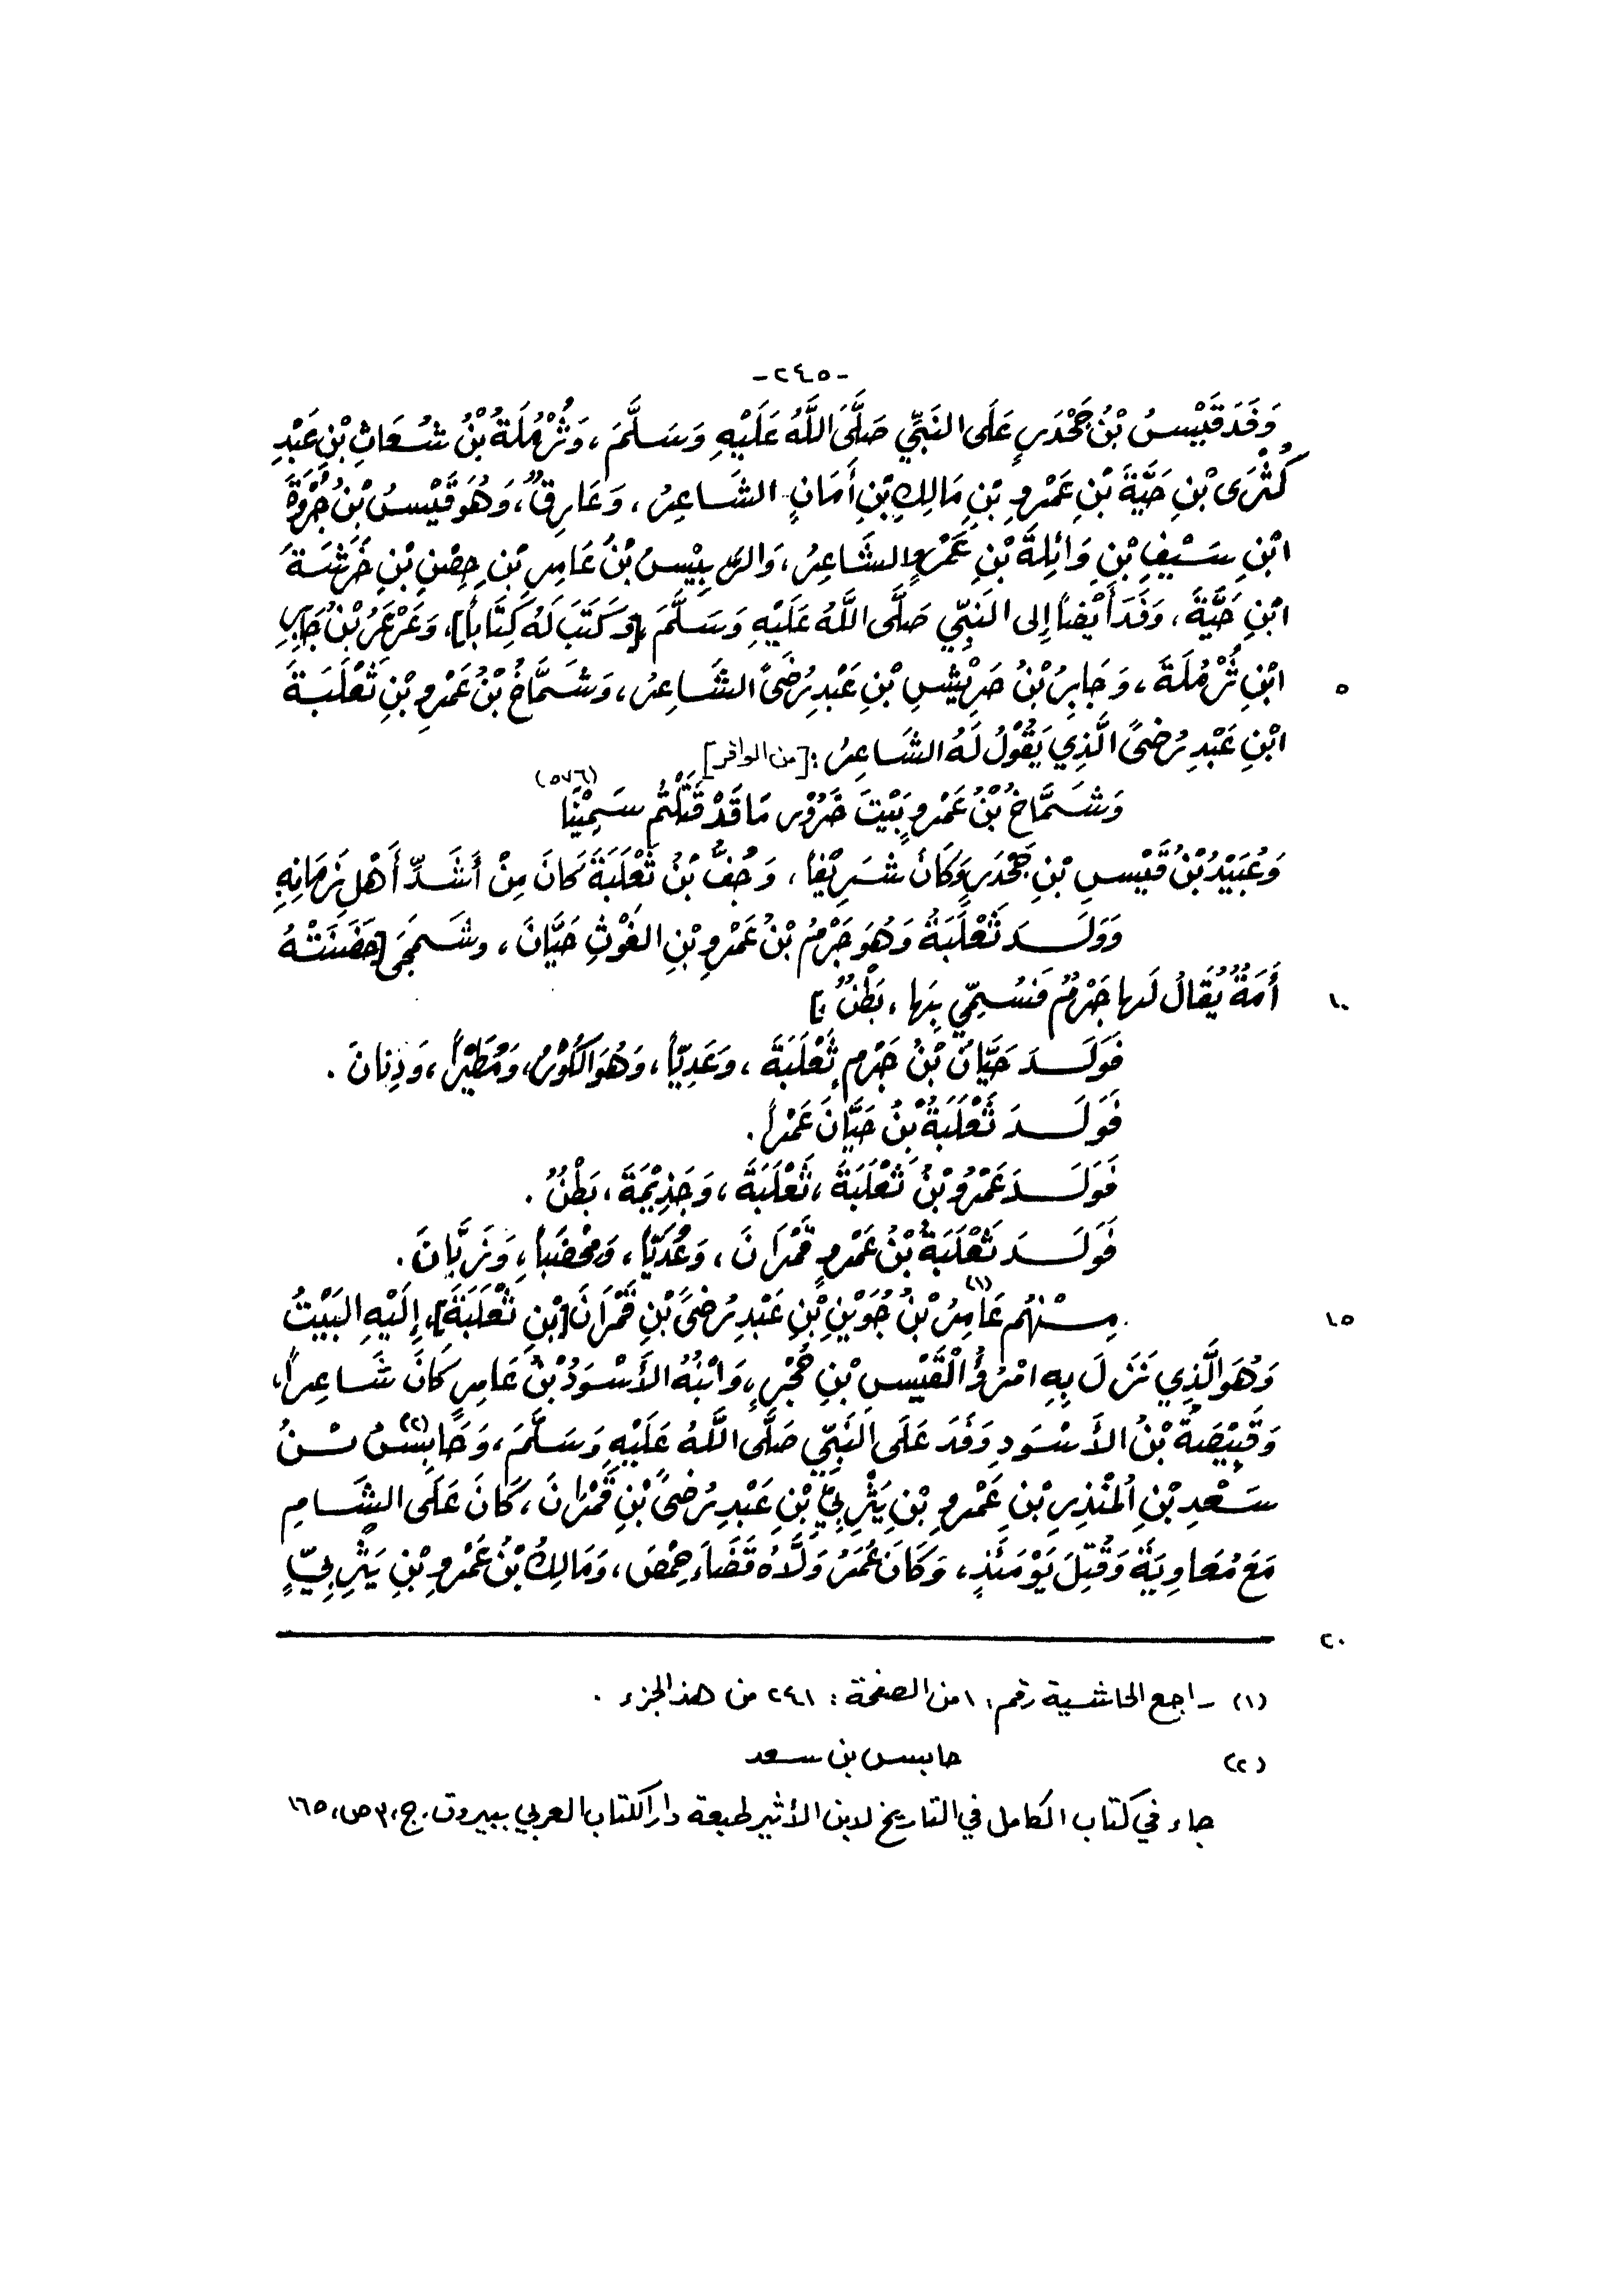 -٢٤٥-
وَفَدَ قَيْسُ بْنُ جَحْدَرٍ عَلَى النَّبِيِّ صَلَّى اللَّهُ عَلَيْهِ وَسَلَّمَ، وَثُرْمُلَةُ بْنُ شُعَاثِ بْنِ عَبْدِ
كُثْرَى بْنِ حَيَّةَ بْنِ عَمْرِو بْنِ مَالِكِ بْنِ أَمَانٍ الشَّاعِرُ، وَعَارِقٌ، وَهُوَ قَيْسُ بْنُ جُرْوَةَ
ابْنِ سَيْفِ بْنِ وَائِلَةَ بْنِ عَمْرٍو الشَّاعِرُ، وَالرِّبِيْسُ بْنُ عَامِرِ بْنِ حِصْنِ بْنِ خَرَشَةَ
ابْنِ حَيَّةَ، وَفَدَ أَيْضاً إِلى النَّبِيِّ صَلَّى اللَّهُ عَلَيْهِ وَسَلَّمَ، [وَكَتَبَ لَهُ كِتَاباً]، وَعَرْعَرُ بْنُ جَابِرِ
ابْنِ ثُرْمُلَةَ، وَجَابِرُ بْنُ حَرِيْشِ بْنِ عَبْدِ رُضَىً الشَّاعِرُ، وَشَمَّاخُ بْنُ عَمْرِو بْنِ ثَعْلَبَةَ
٥
ابْنِ عَبْدِ رُضىً الَّذِي يَقُوْلُ لَهُ الشَّاعِرُ: [من الوافر]
وَشَمَّاخُ بْنُ عَمْرٍو بَيْتَ خَزْوٍ مَا قَدْ قَتَلْتُم سَمِيْنَا (٥٧٦)
وَعُبَيْدُ بْنُ قَيْسِ بْنِ جَحْدَرٍ وَكَانَ شَرِيْفاً، وَجُفُّ بْنُ ثَعْلَبَةَ كَانَ مِنْ أَشَدِّ أَهْلِ زَمَانِهِ
وَوَلَدَ ثَعْلَبَةُ وَهُوَ جَرْمُ بْنُ عَمْرِو بْنِ الغَوْثِ حَيَّانَ، وشَمَجَى [حَضَنَتْهُ
أَمَةٌ يُقَالُ لَها جَرْمٌ فَسُمِّيَ بِهَا، بَطْنٌ.]
١٠
فَوَلَدَ حَيَّانُ بْنُ جَرْمٍ ثَعْلَبَةَ، وَعَدِيّاً، وَهُوَ الكُوْرُ، وَمُطَيْراً، وَدِنانَ.
فَوَلَدَ ثَعْلَبَةُ بْنُ حَيَّانَ عَمْراً.
فَوَلَدَ عَمْرُو بْنُ ثَعْلَبَةَ، ثَعْلَبَةَ، وَجَذِيْمَةَ، بَطْنٌ.
فَوَلَدَ ثَعْلَبَةُ بْنُ عَمْرٍو قَمْرَانَ، وَعُدَيّاً، وَمِحْضَباً، وَزَبَّانَ.
مِنْهُم عَامِرُ (١) بْنُ جُوَيْنِ بْنِ عَبْدِ رُضىً بْنِ قَمْرَانَ [بْنِ ثَعْلَبَةَ]، إِلَيْهِ البَيْتُ
١٥
وَهُوَ الَّذِي نَزَلَ بِهِ امْرُؤُ الْقَيْسِ بْنِ حُجْرٍ، وَابْنُهُ الأَسْوَدُ بْنُ عَامِرٍ كَانَ شَاعِراً،
وَقَبِيْصَةُ بْنُ الأَسْوَدِ وَفَدَ عَلَى النَّبِيِّ صَلَّى اللَّهُ عَلَيْهِ وَسَلَّمَ، وَحَابِسُ (٢) بْنُ
سَعْدِ بْنِ الْمُنْذِرِ بْنِ عَمْرِو بْنِ يَثْرِبِيِّ بْنِ عَبْدِ رُضىً بْنِ قَمْرَانَ، كَانَ عَلَى الشَّامِ
مَعَ مُعَاوِيَةَ وَقُتِلَ يَوْمَئِذٍ، وَكَانَ عُمَرُ وَلَّاهُ قَضَاءَ حِمْصَ، وَمَالِكُ بْنُ عَمْرِو بْنِ يَثْرِبِيٍّ
٢٠
(١) راجع الحاشية رقم: ١ من الصفحة: ٢٤١ من هذا الجزء.
(٢) حابس بن سعد
جاء في كتاب الكامل في التاريخ لابن الأثير طبعة دار الكتاب العربي ببيروت. ج، ٣ ص، ١٦٥